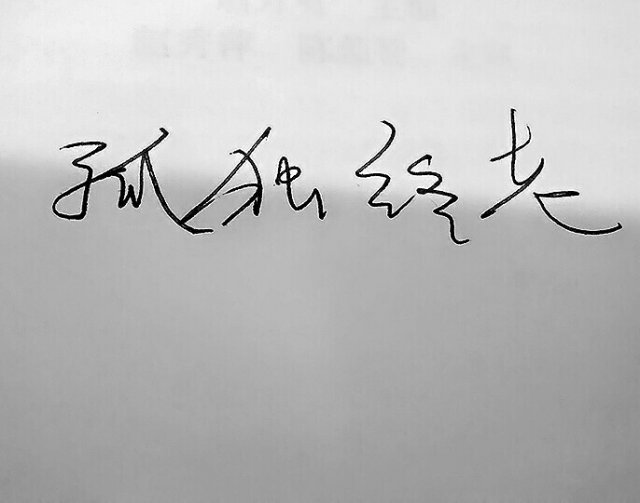 孤独终老